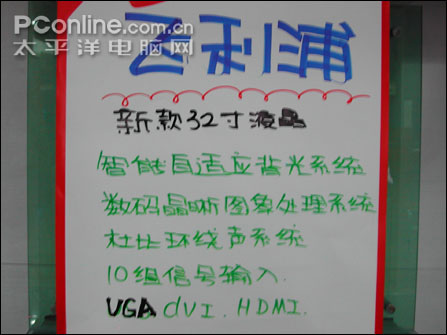 PConline.com.cn
太平洋电脑网
飞利浦
新款32寸液晶
智能自适应背光系统
数码晶晰图象处理系统
杜比环绕声系统
10组信号输入.
VGA dVI. HDMI.